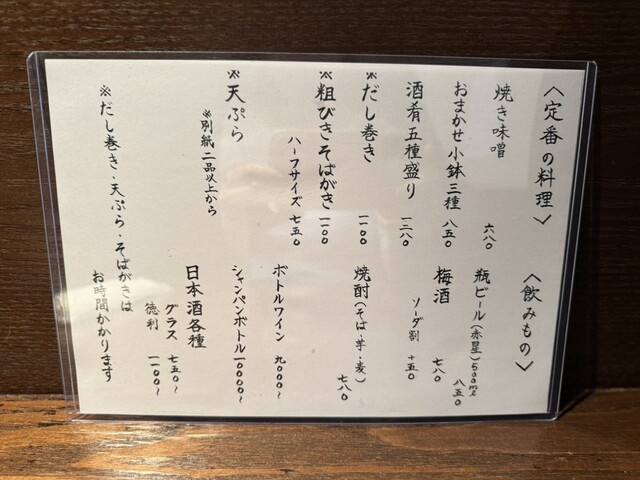 〈定番の料理〉
焼き味噌 六八〇
おまかせ小鉢三種 八五〇
酒肴五種盛り 一二八〇
※だし巻き 一一〇〇
※粗びきそばがき 一一〇〇
ハーフサイズ 七五〇
※天ぷら
※別紙二品以上から
〈飲みもの〉
瓶ビール(赤星)500ml 八五〇
梅酒 七八〇
ソーダ割 +五〇
焼酎(そば・芋・麦) 七八〇
ボトルワイン 九〇〇〇〜
シャンパンボトル 一〇〇〇〇〜
日本酒各種
グラス 七五〇〜
徳利 一一〇〇〜
※だし巻き・天ぷら・そばがきは
お時間かかります